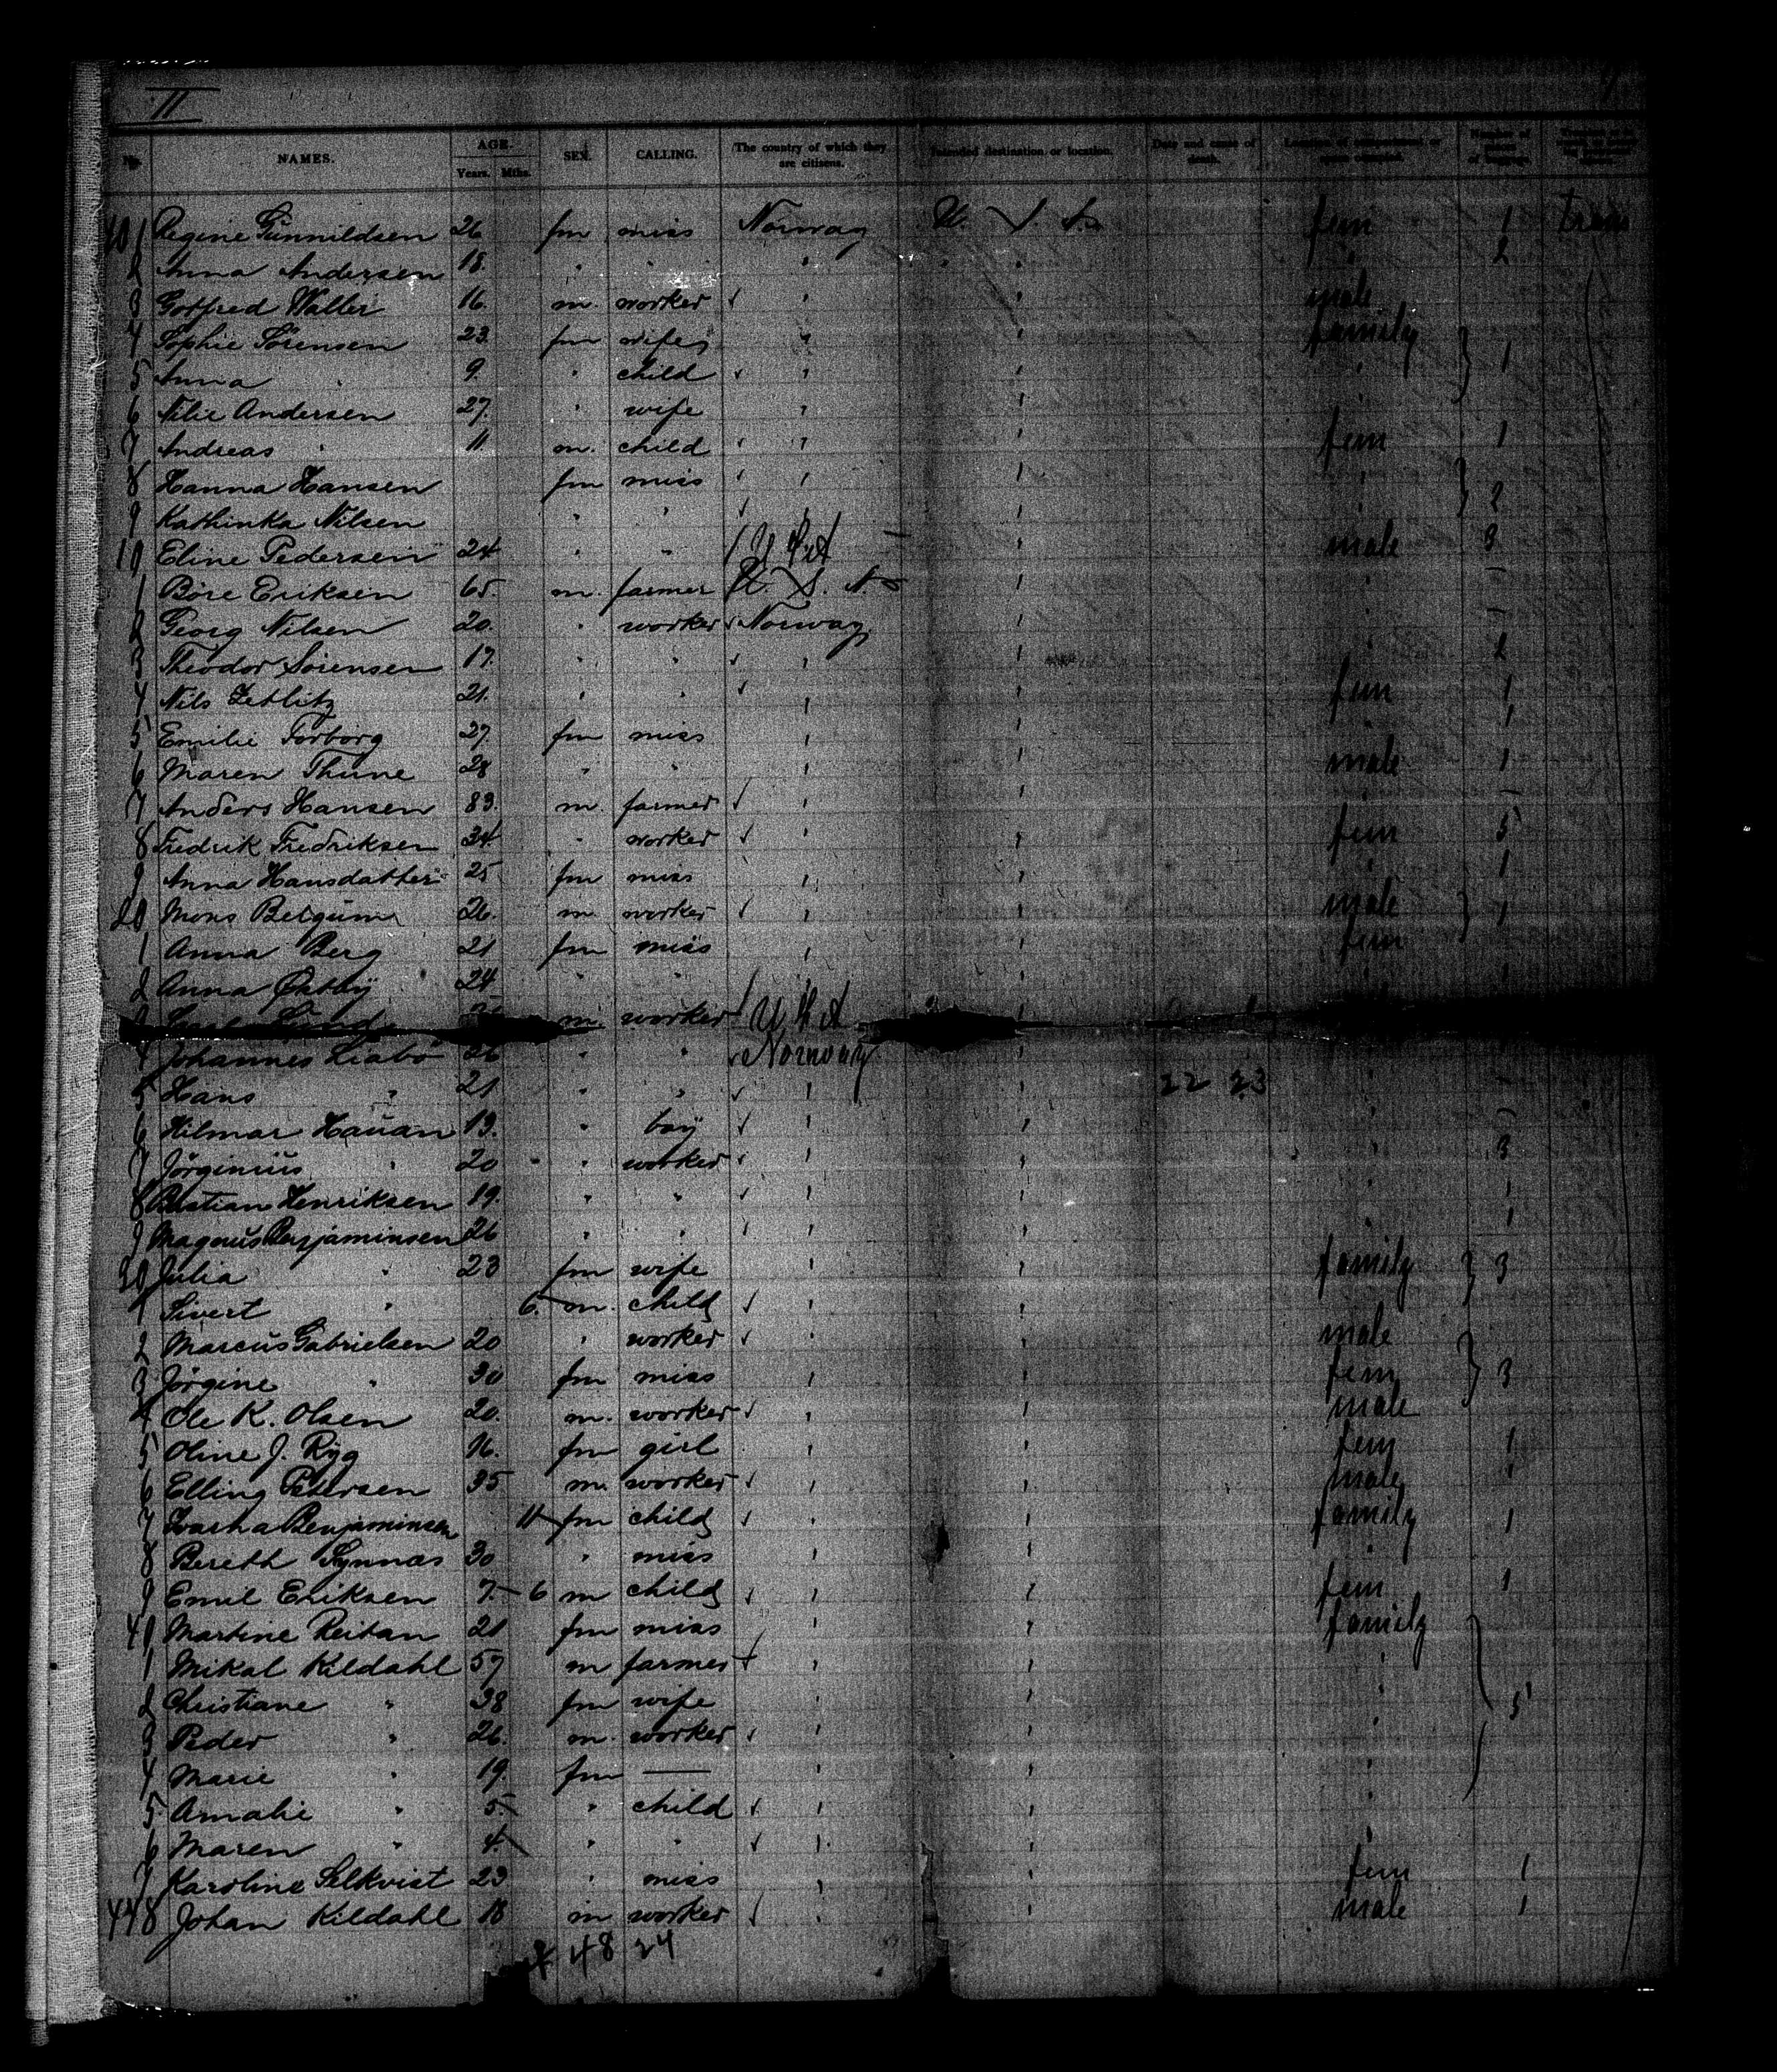 11
No. NAMES. AGE. Years. Mths. SEX. CALLING. The country of which they are citizens. Intended destination or location. Date and cause of death. Location of compartment or space occupied. Number of pieces of baggage.
1 Regine Gunnildsen 26 fm miss Norway U. S. A. fem 1 tran
2 Anna Andersen 18. " " " " " 2
3 Gotfred Waller 16. m. worker " " male
4 Sophie Sörensen 23. fm wife " " family
5 Anna " 9. " child " " " 1
6 Nilie Andersen 27. " wife " " "
7 Andreas " 11. m. child " " fem 1
8 Hanna Hansen fm miss " " "
9 Kathinka Nilsen " " " " " 2
10 Eline Pedersen 24 " " U.S.A " male 3
1 Böre Eriksen 65. m. farmer U. S. A. " " —
2 Georg Nilsen 20. " worker Norway " " —
3 Theodor Sörensen 17. " " " " " 2
4 Nils Zetlitz 21. " " " " fem 1
5 Emilie Torborg 27. fm miss " " 1
6 Maren Thune 28 " " " " male 1
7 Anders Hansen 83. m. farmer " " " —
8 Fredrik Fredriksen 34. " worker " " fem 5
9 Anna Hansdatter 25 fm miss " " " 1
20 Mons Belgum 26. m. worker " " male 1
1 Anna Berg 21 fm miss " " fem
2 Anna Östby 24 " " " "
m. worker U.S.A "
4 Johannes Liabö 26 " " Norway "
5 Hans " 21 " " " " 22 23 " —
6 Hilmar Hauan 13. " boy " " " —
7 Jörginius " 20 " worker " " " 3
8 Bastian Henriksen 19. " " " " " 1
9 Magnus Benjaminsen 26 " " " " " 1
30 Julia " 23 fm wife " " family 3
1 Sivert " 6. m. child " " "
2 Marcus Gabrielsen 20 " worker " " male
3 Jörgine " 30 fm miss " " fem 3
4 Ole K. Olsen 20. m. worker " " male
5 Oline J. Ryg 16. fm girl " " fem 1
6 Elling Petersen 35 m. worker " " male 1
7 Benjaminsen 11 fm child " " family 1
8 Bereth Synnæs 30 " miss " " "
9 Emil Eriksen 7. 6 m child " " fem 1
40 Martine Reitan 21 fm miss " " family
1 Mikal Kildahl 57 m farmer " " "
2 Christiane " 38 fm wife " " " 5
3 Peder " 26. m. worker " " "
4 Marie " 19. fm — " " "
5 Amalie " 5. " child " " "
6 Maren " 4. " " " " "
7 Karoline Selkvist 23 " miss " " fem 1
448 Johan Kildahl 18 m worker " " male 1
48 24